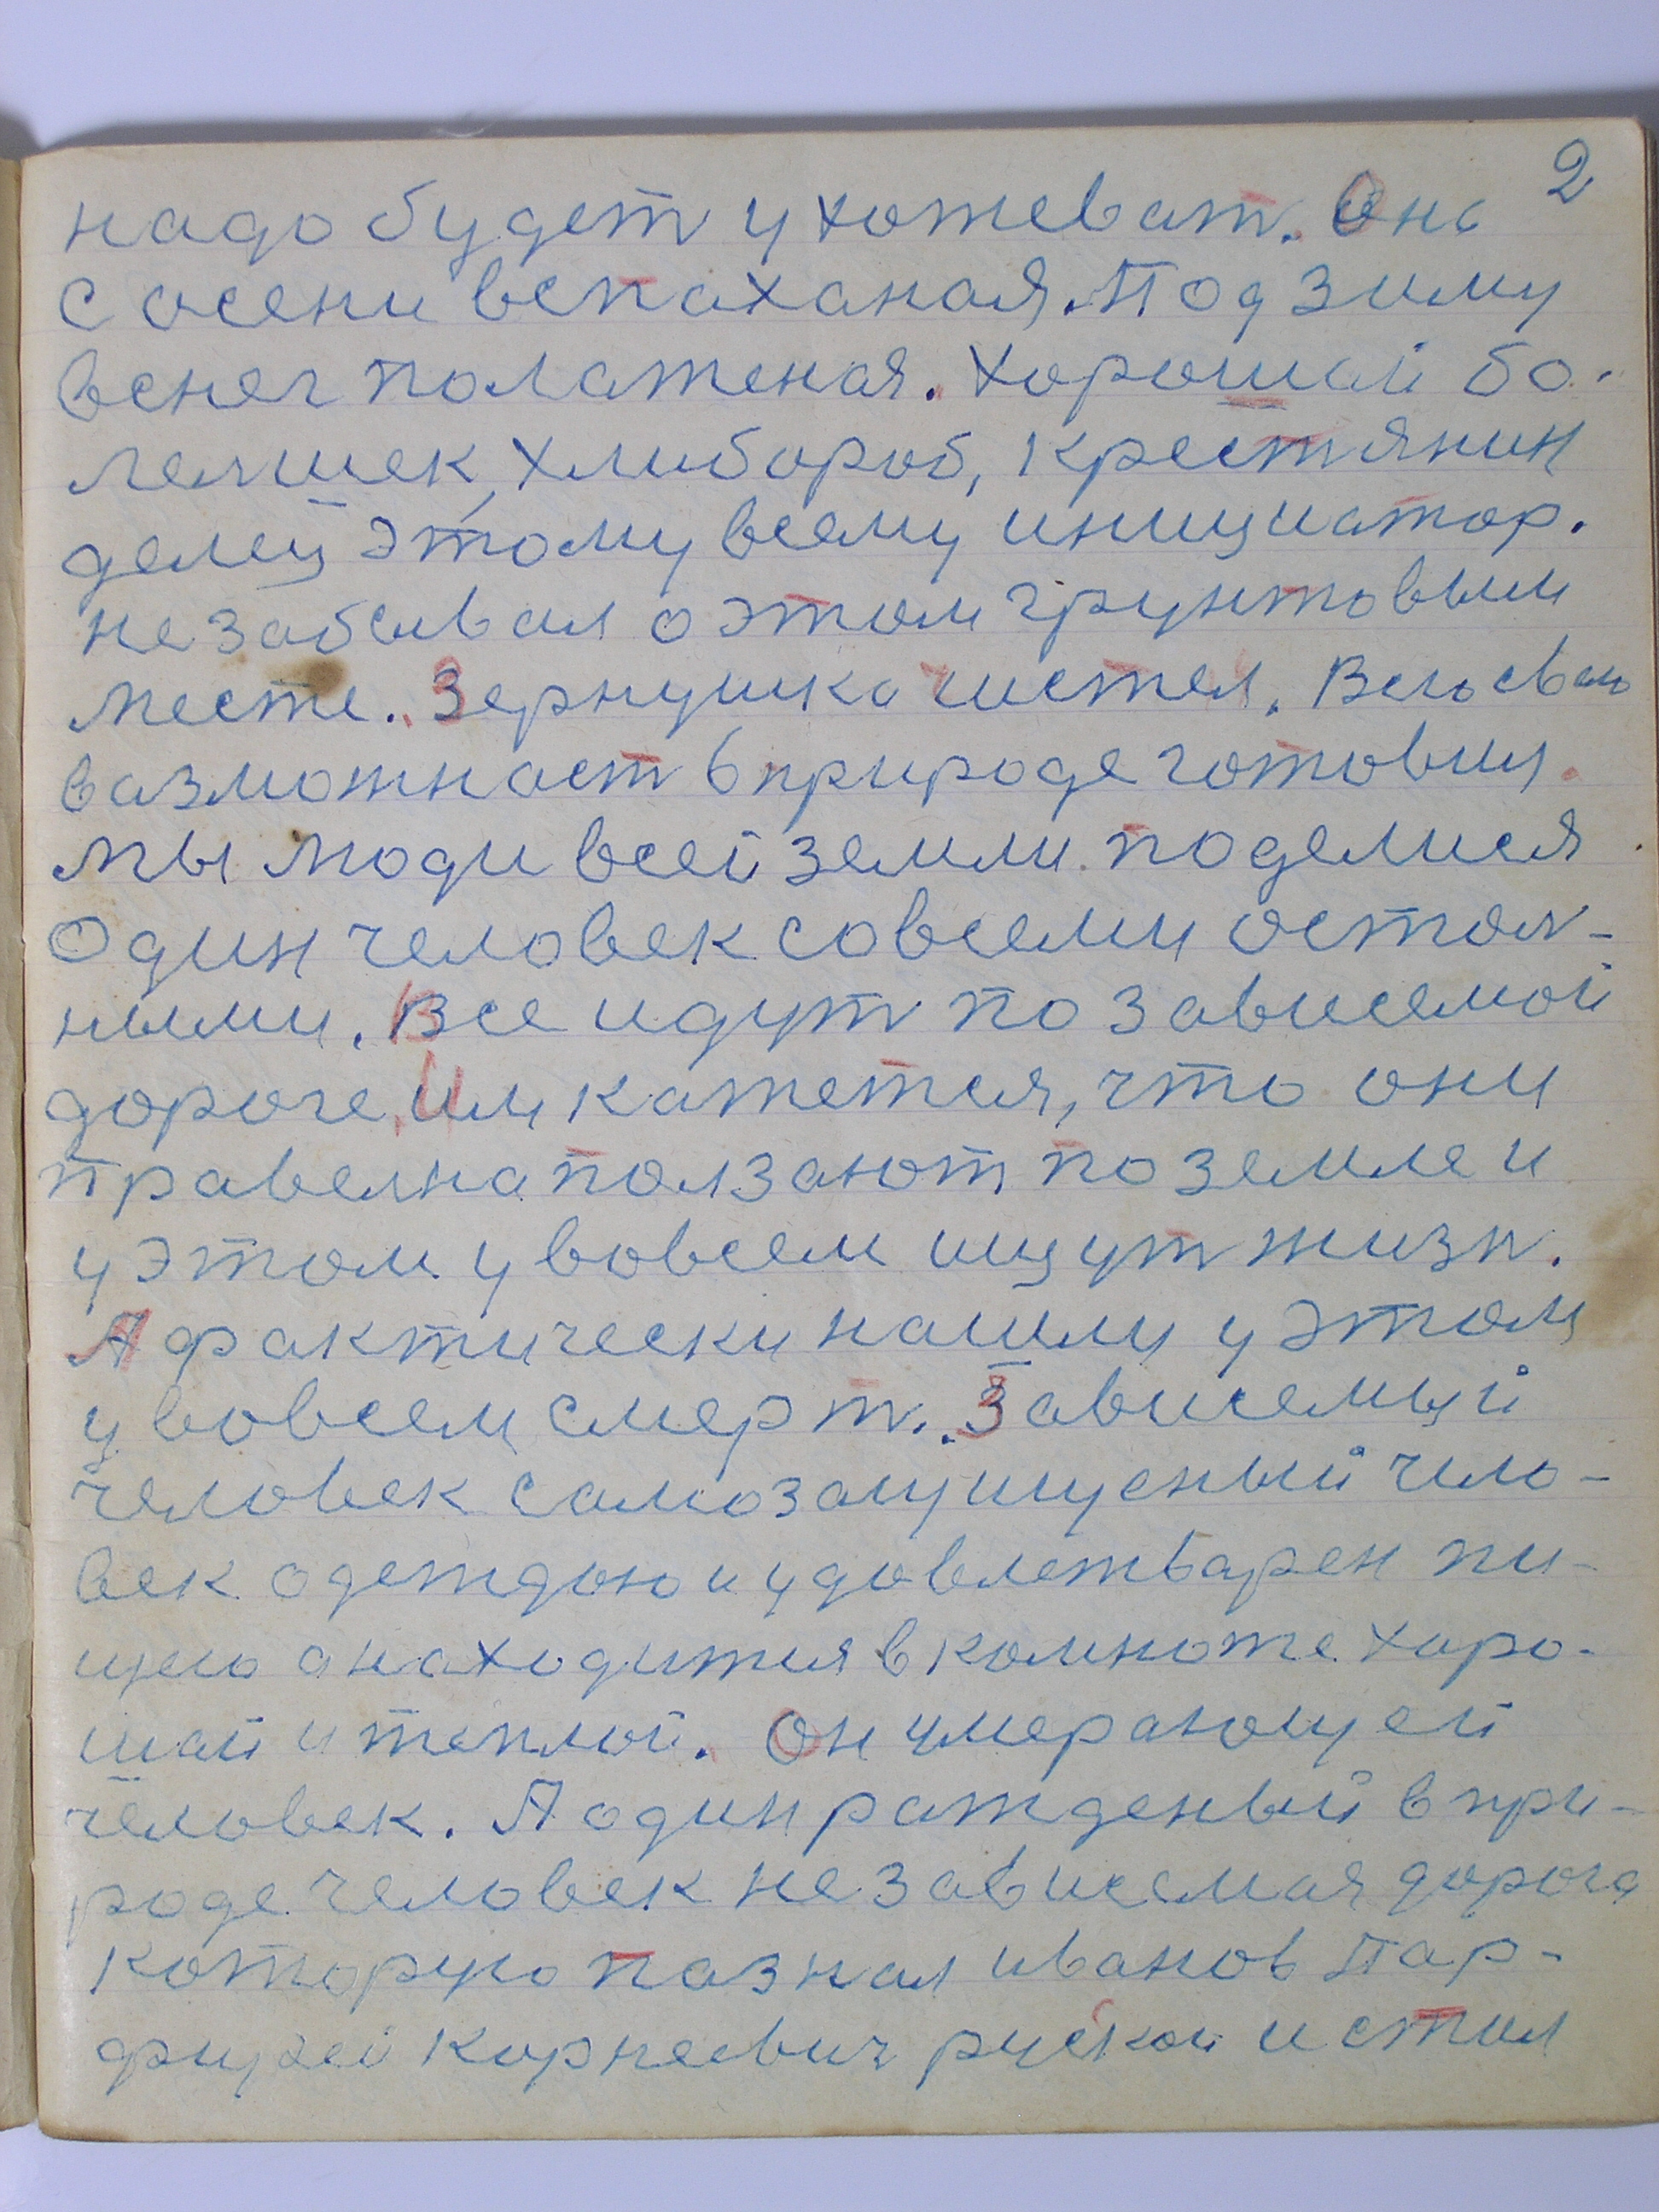 2
надо будет ухожеват. Она
с осени вспаханая. Под зиму
вснег положеная. Хорошай бо-
лельшек, хлибороб, крестянин
делец этому всему инициатор.
не забывал о этом грунтовым
месте. Зернушка чистел. Всю свою
вазможност в природе готовил
мы люди всей земли поделися
Один человек совсеми осталь-
ными. Все идут по зависемой
дороге, им кажется, что они
правелна ползают по земле и
у этом у вовсем ищут жизн.
А фактически нашли у этом
у вовсем смерт. Зависемый
человек самозащищеный чило-
век одеждою и удовлетварен пи-
щею а находится в комноте харо-
шай и теплой. Он умерающей
человек. А один ражденый в при-
роде человек не зависемая дорога
которую пазнал иванов Пар-
фирей Корнеевич руской и стал